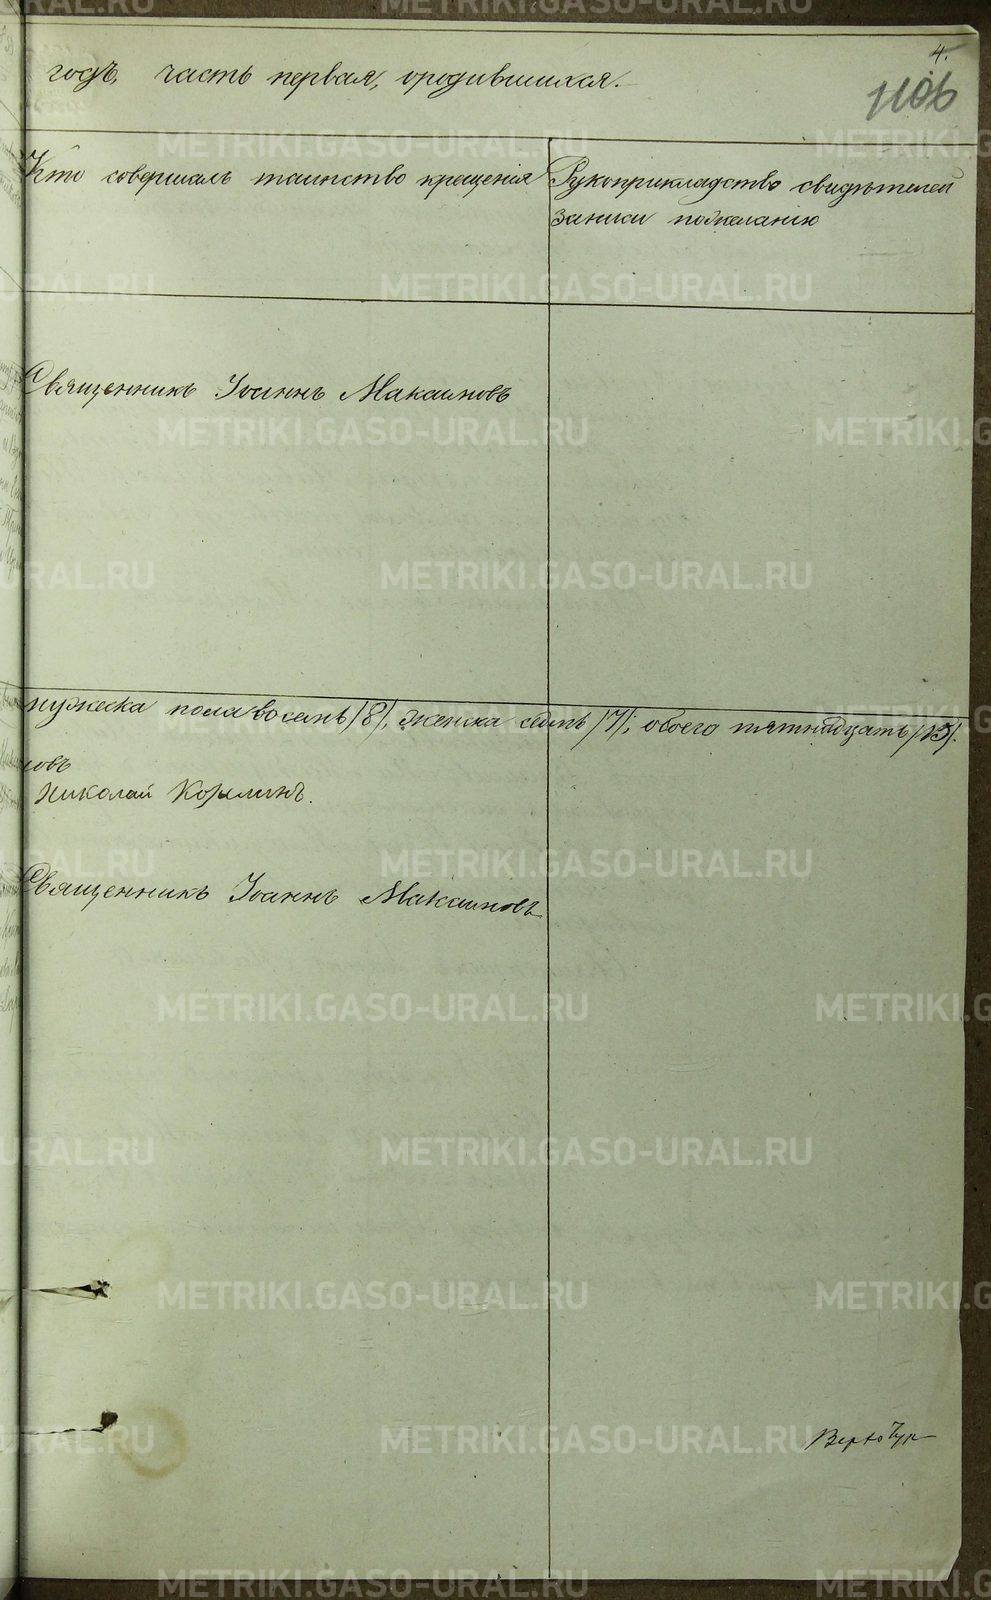 4.
1106
годъ, часть первая, ородившихся.
Кто совершалъ таинство крещенія
Рукоприкладство свидѣтелей
записи пожеланію
Священникъ Іоаннъ Максимовъ
мужеска пола восемь /8/, женска семь /7/; обоего пятнадцать /15/.
новъ
Николай
Священникъ Іоаннъ Максимовъ
METRIKI.GASO-URAL.RU